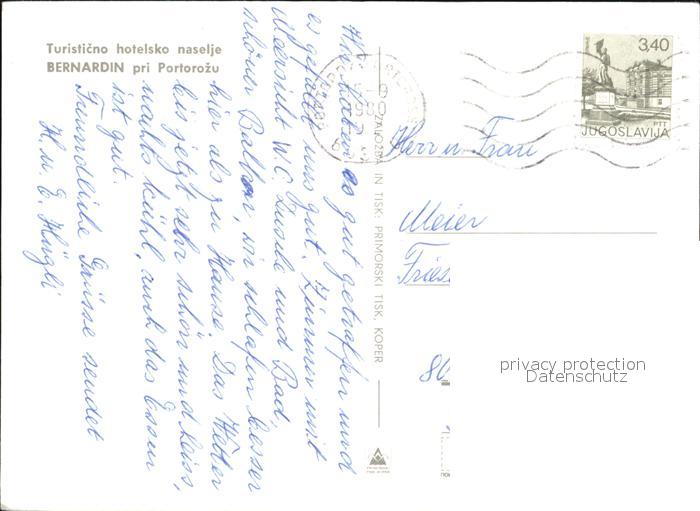 Turistično hotelsko naselje
BERNARDIN pri Portorožu
Wir haben es gut getroffen und
es gefällt uns gut. Zimmer mit
Meersicht W.C. Dusche und Bad,
schöner Balkon, wir schlafen besser
hier als zu Hause. Das Wetter
bis jetzt sehr schön und heiss,
nachts kühl, auch das Essen
ist gut.
Freundliche Grüsse sendet
H. u. E. Hügli
ZALOŽBA IN TISK: PRIMORSKI TISK, KOPER
1980
3,40
PTT
JUGOSLAVIJA
Herr u. Frau
Meier
Fries
80
privacy protection
Datenschutz